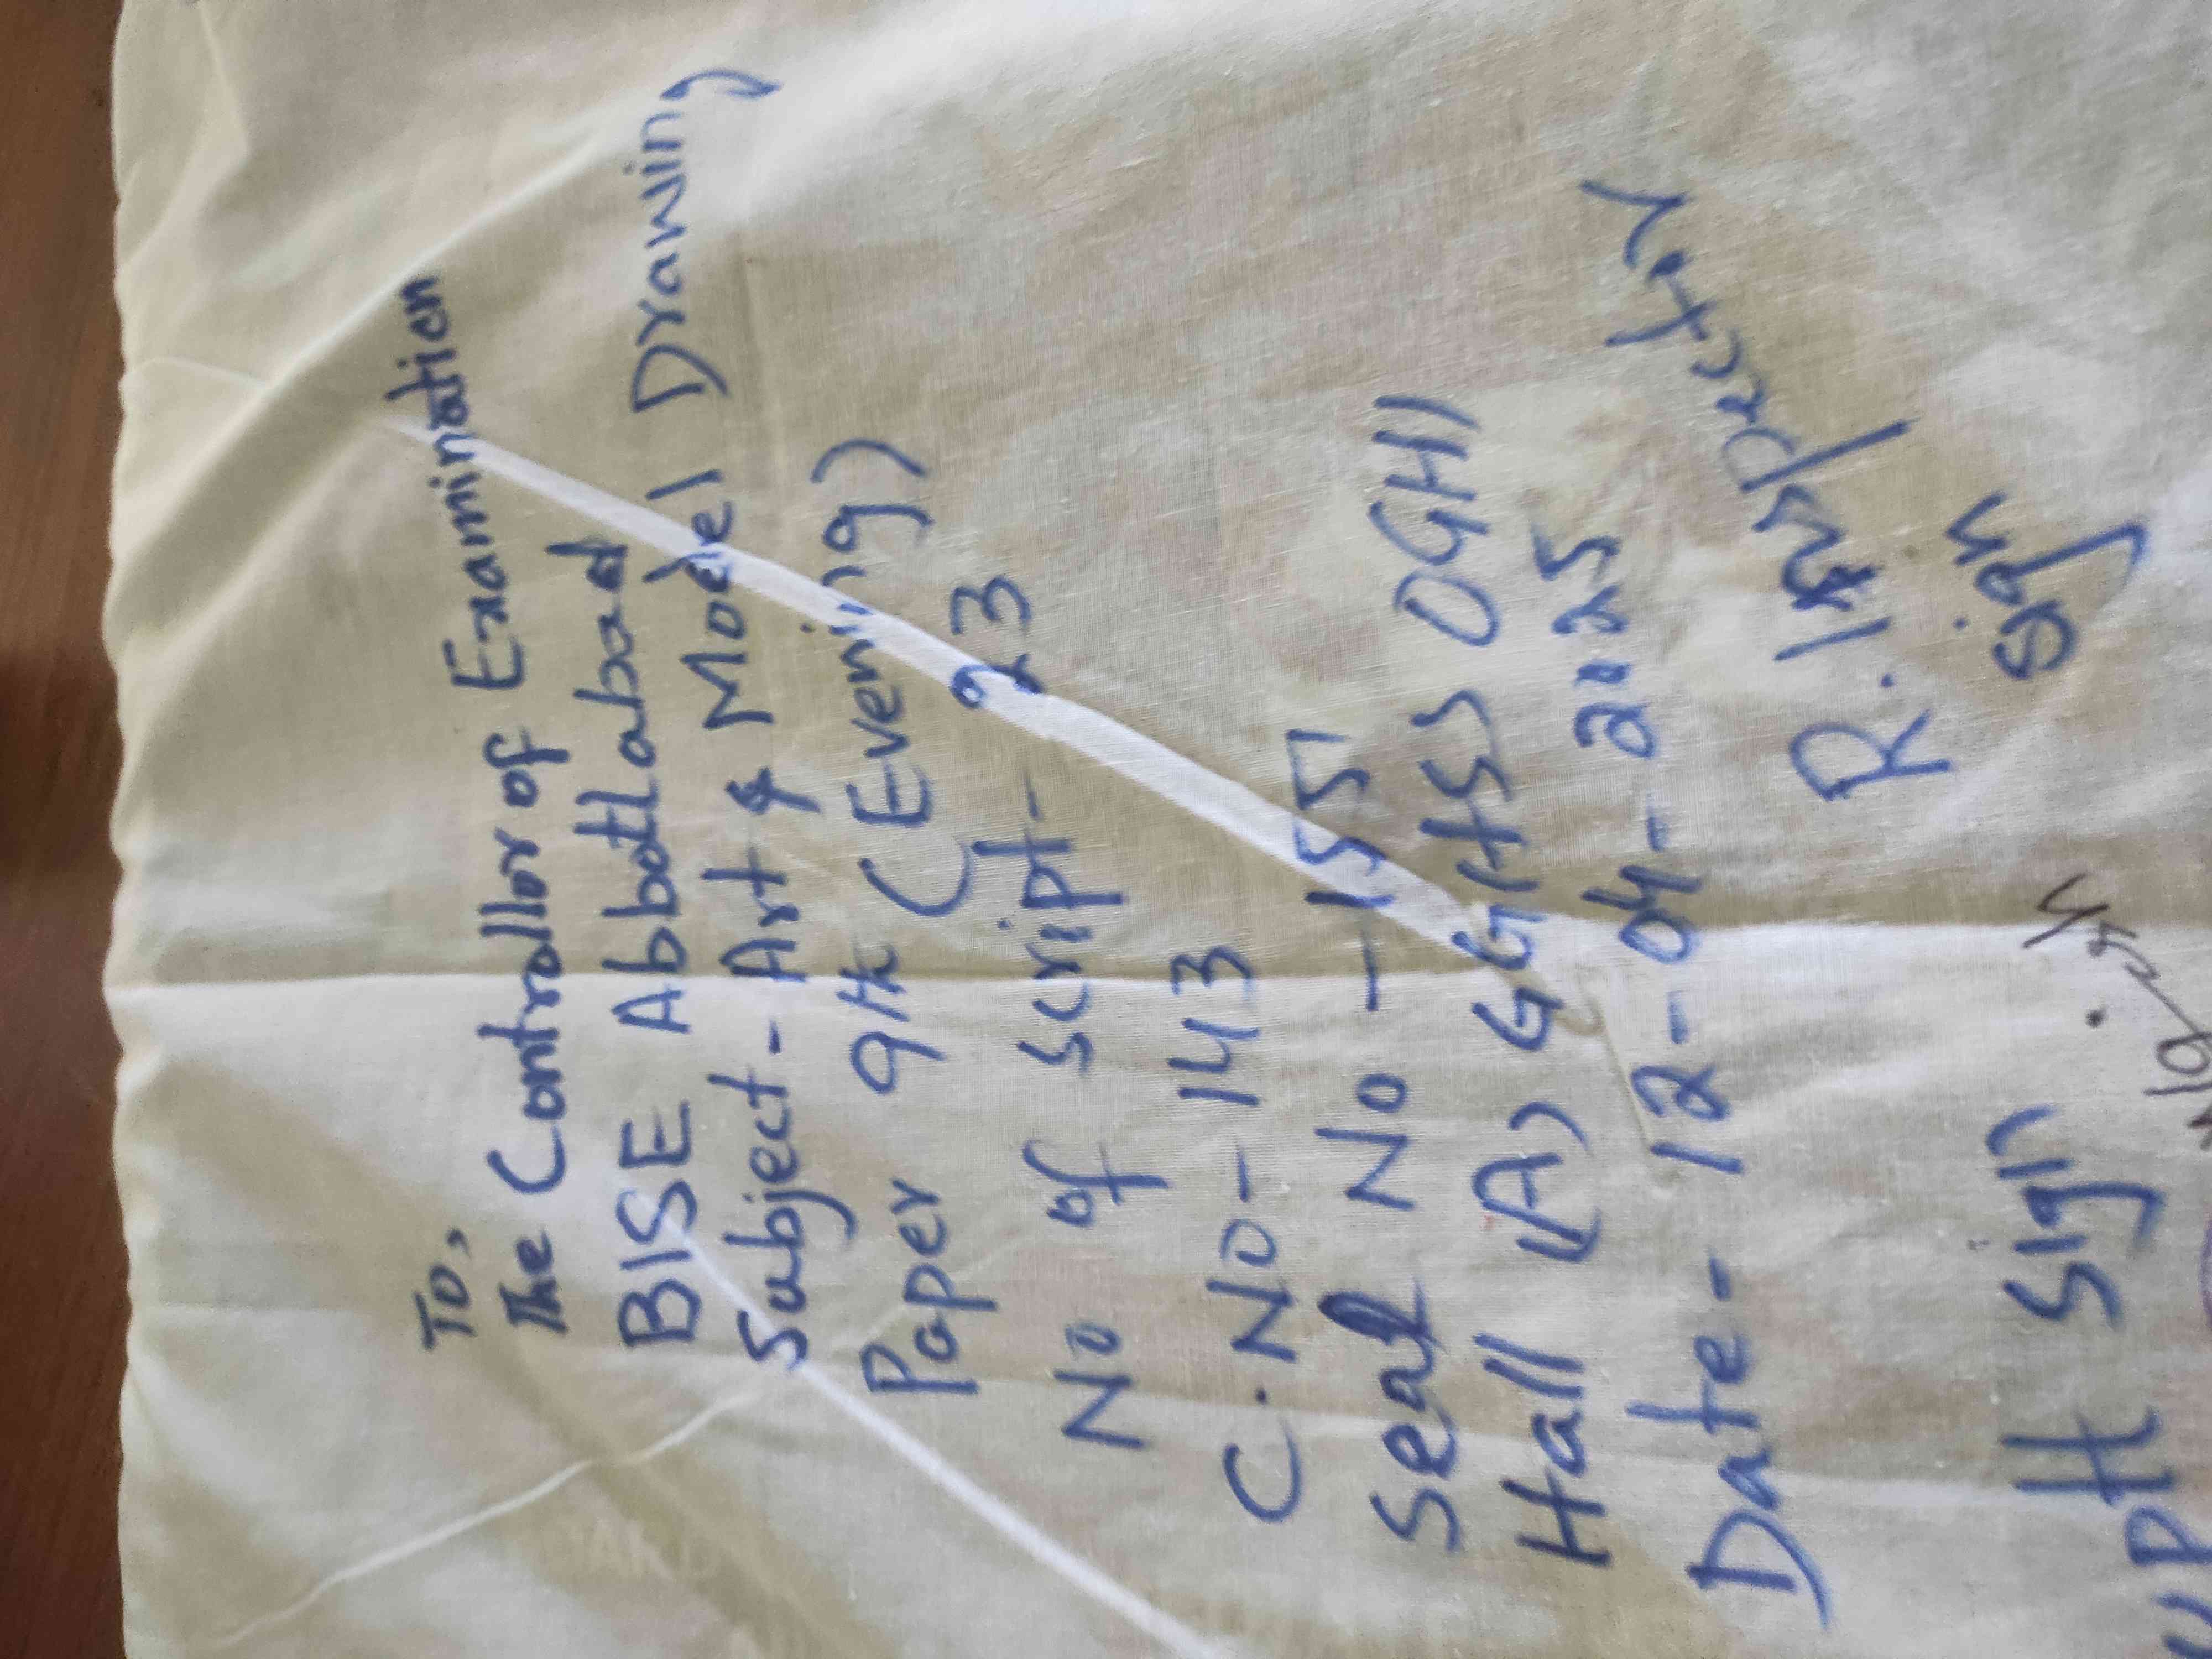 To,
The Controllor of Examination
BISE Abbottabad
Subject - Art & Model Drawing
Paper 9th (Evening)
No of script - 23
C.No - 143
Seal No - 155
Hall (A) GGHSS OGHI
Date - 12-04-2025
R. Inspector
sign
Sign